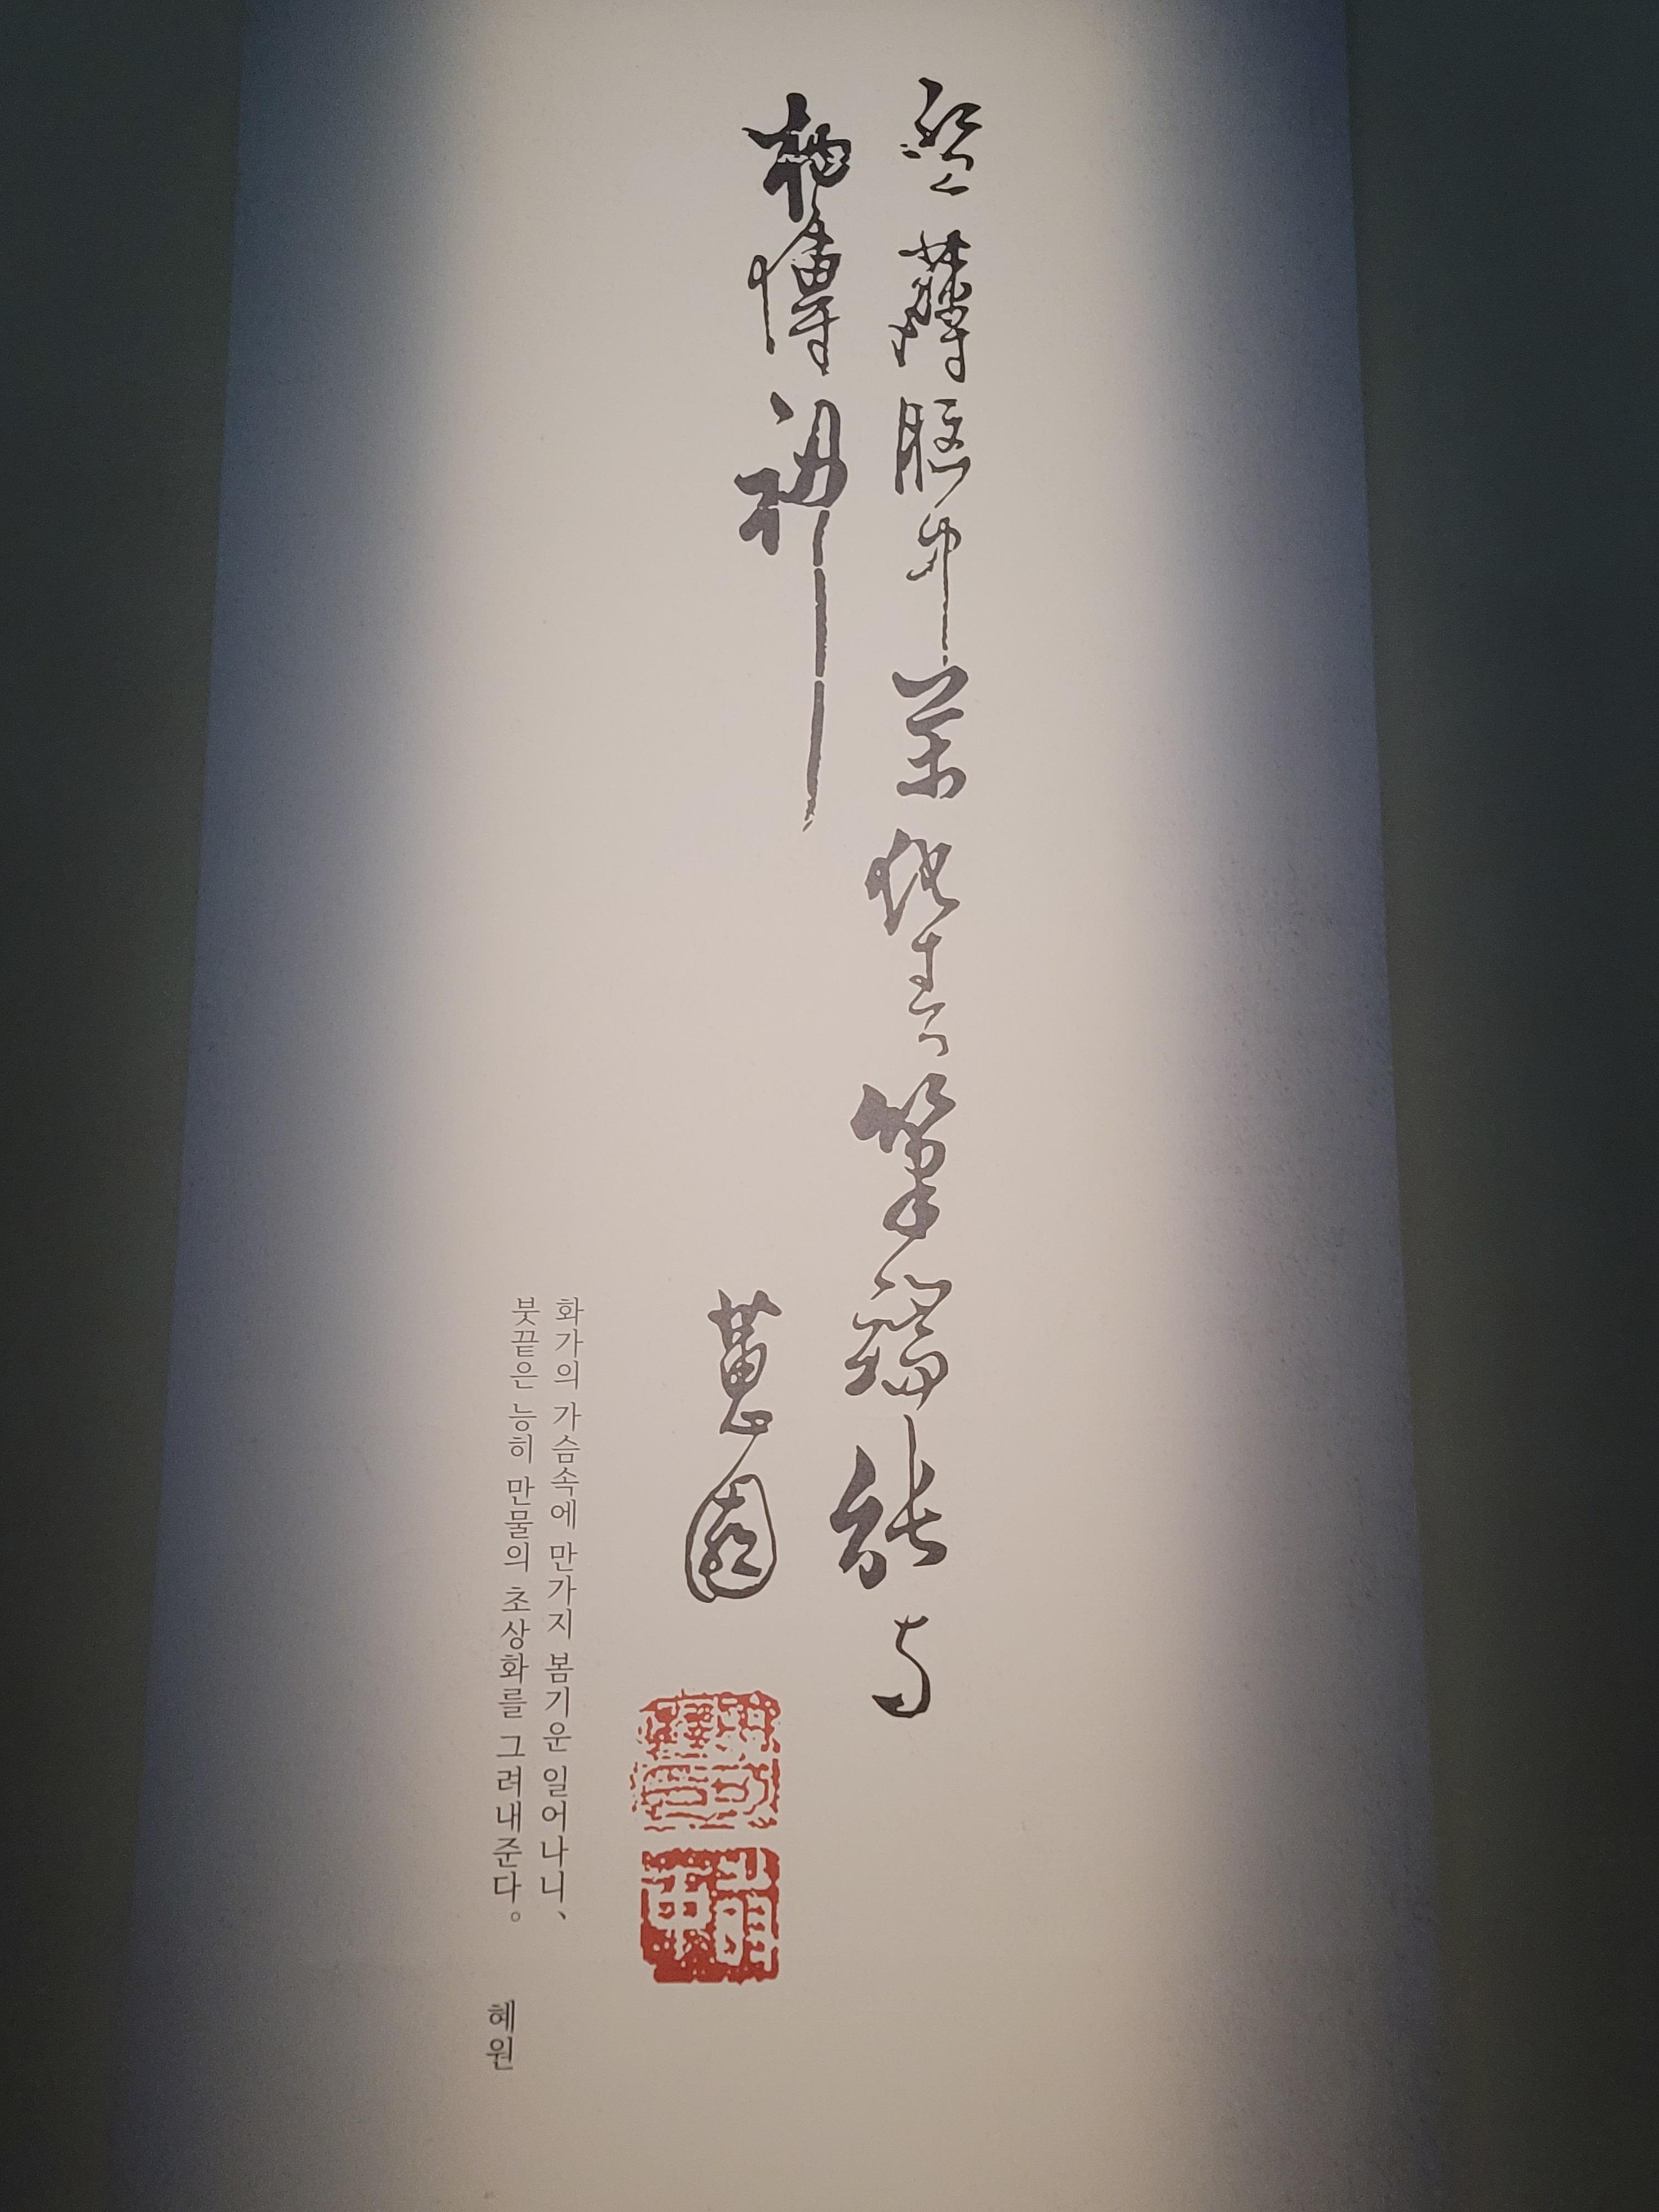 盤薄胸中萬化春筆端能與
物傳神
蕙園
申可權印
時中
화가의 가슴속에 만가지 봄기운 일어나니、
붓끝은 능히 만물의 초상화를 그려내준다。
혜원